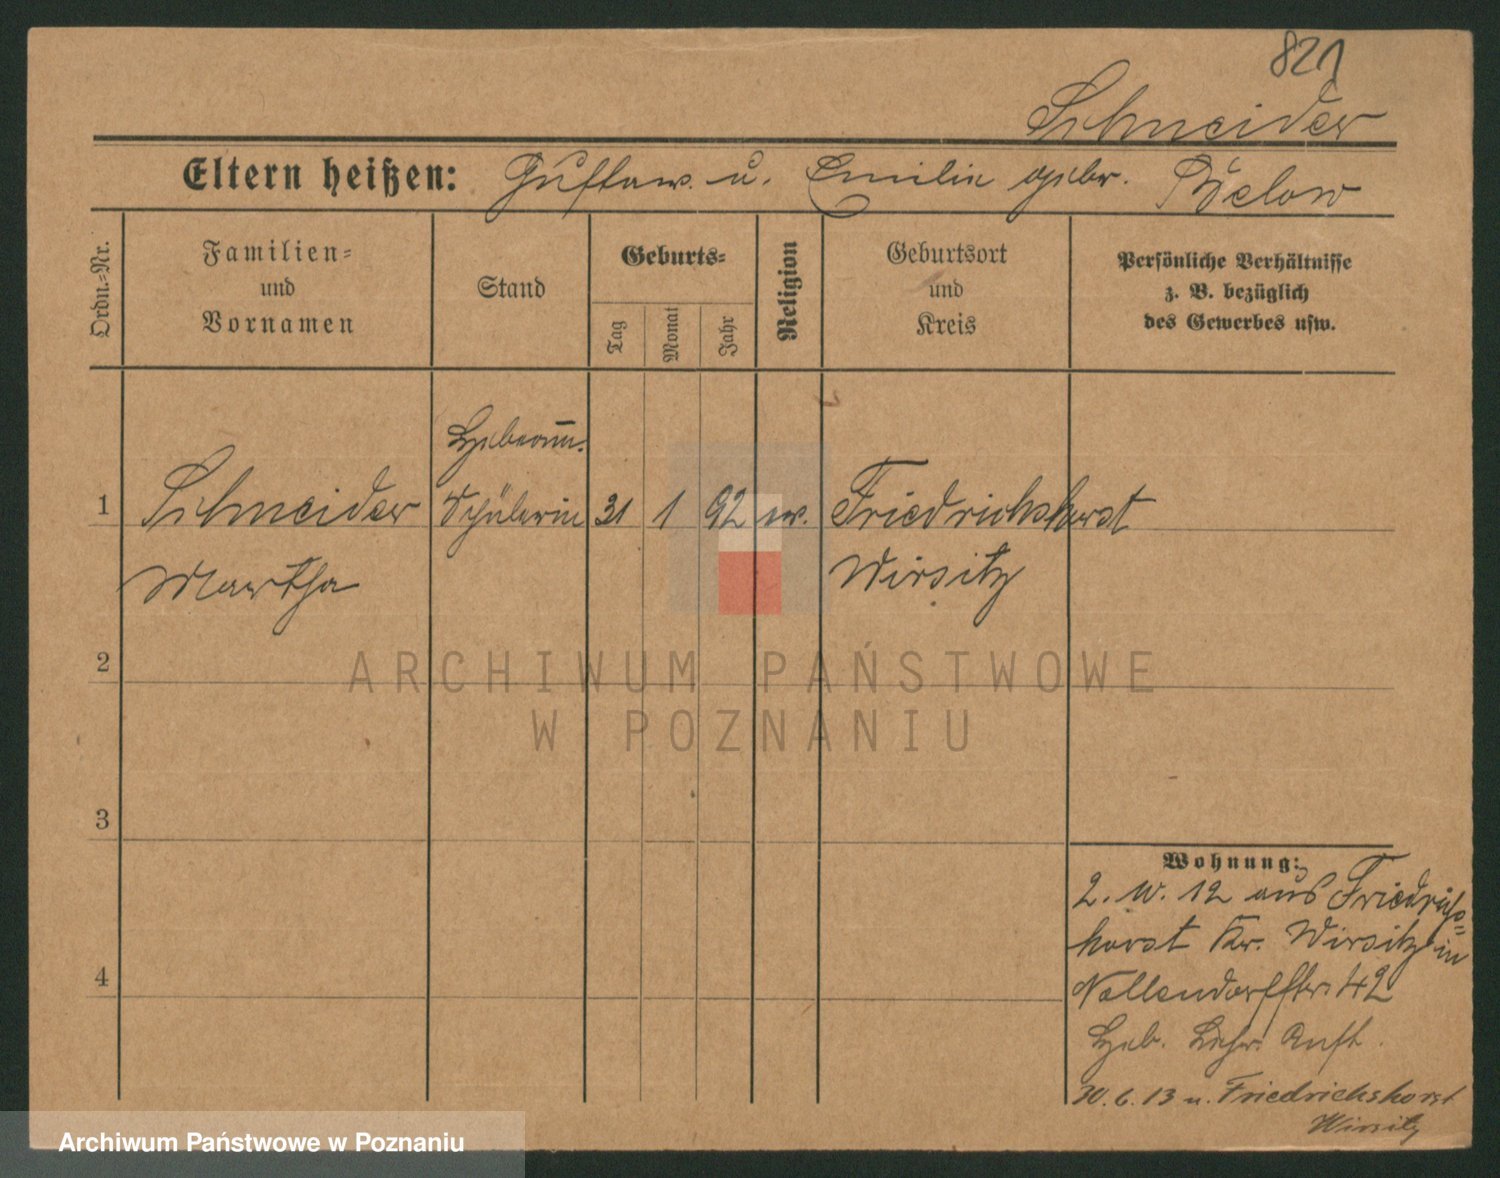 821
Schneider
Eltern heißen: Gustav u. Emilie gebr. Below
Ordn.-Nr.
Familien=
und
Vornamen
Stand
Geburts=
Tag
Monat
Jahr
Religion
Geburtsort
und
Kreis
Persönliche Verhältnisse
z. B. bezüglich
des Gewerbes usw.
Hebeam.
1 Schneider Schülerin 31 1 92 ev. Friedrichshorst
Martha Wirsitz
2
ARCHIWUM PAŃSTWOWE
W POZNANIU
3
Wohnung:
2. 10. 12 aus Friedrichs=
horst Kr. Wirsitz in
Nollendorffstr. 42
Heb. Lehr. Anst.
30. 6. 13 n. Friedrichshorst
Wirsitz
4
Archiwum Państwowe w Poznaniu